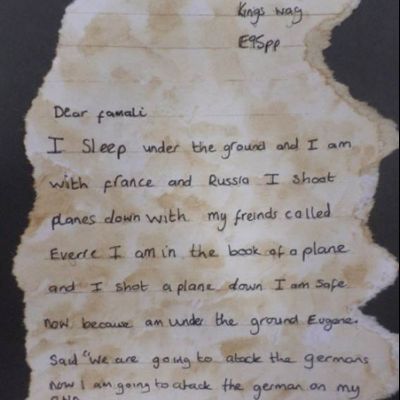 Kings way
E95pp
Dear famali
I Sleep under the ground and I am
with france and Russia I shoot
planes down with my freinds called
Everre I am in the book of a plane
and I shot a plane down I am safe
now because am under the ground Eugene.
Said "We are going to atack the germans
Now I am going to atack the german on my
own